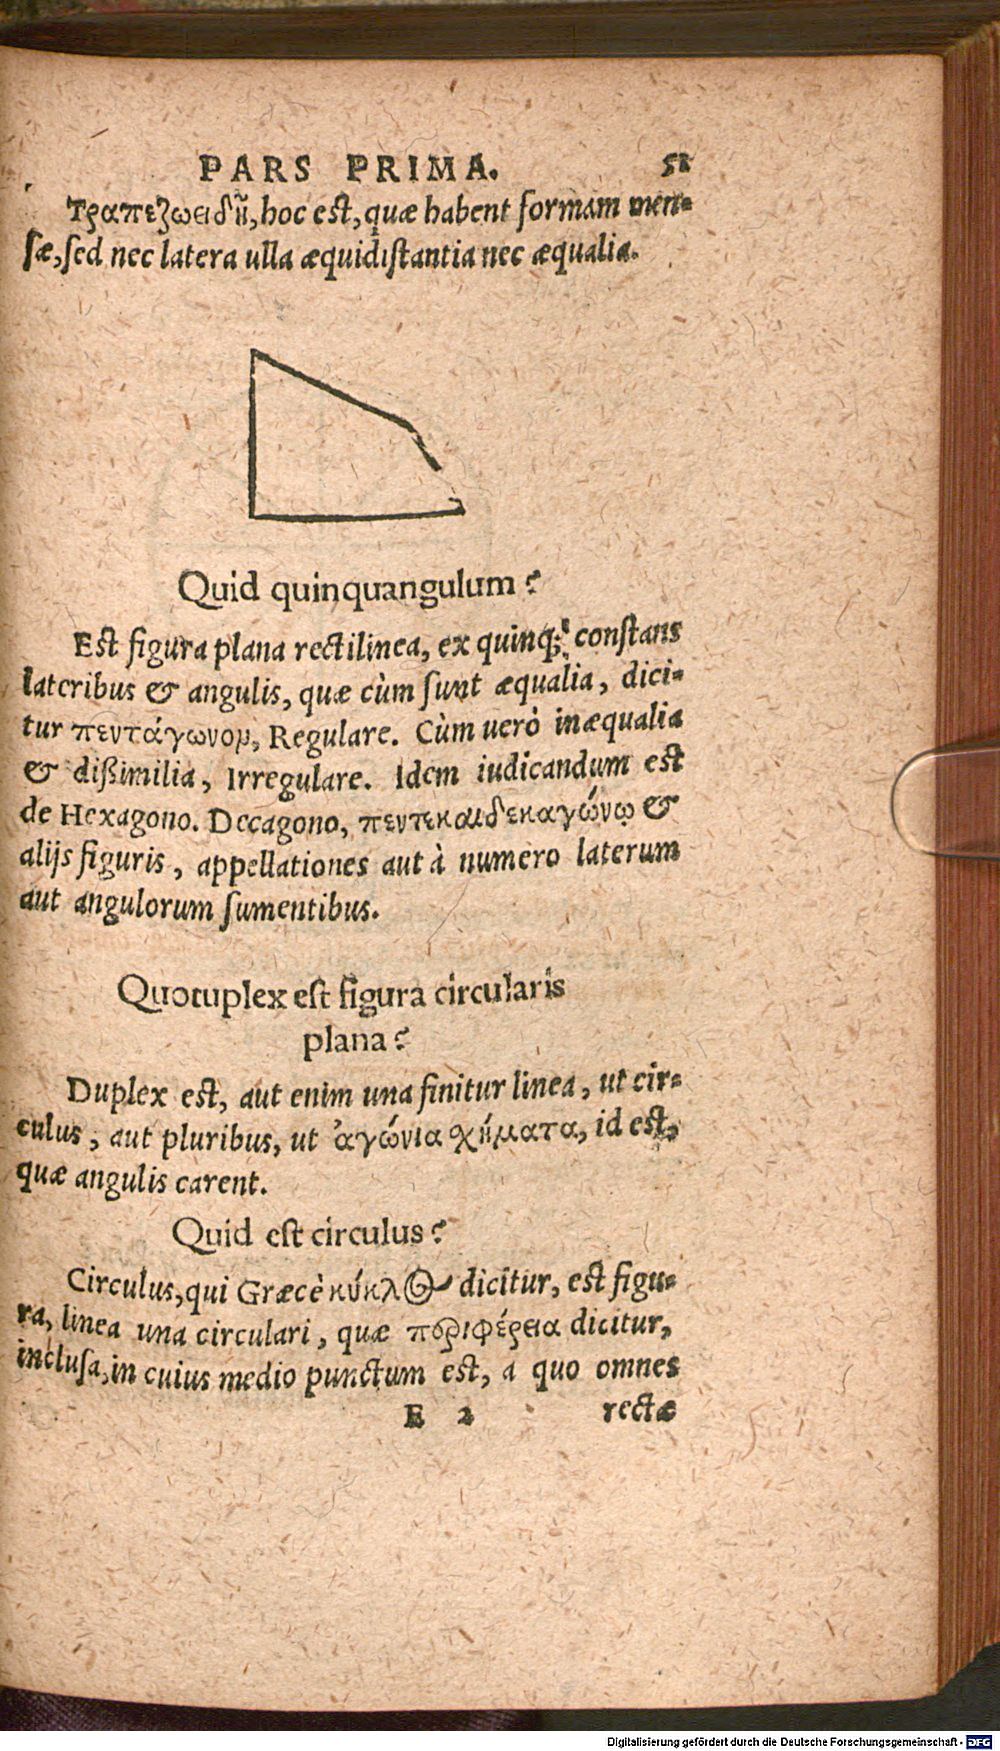 PARS PRIMA. 51
Τραπεζωειδῆ, hoc est, quæ habent formam men-
sæ, sed nec latera ulla æquidistantia nec æqualia.
Quid quinquangulum?
Est figura plana rectilinea, ex quinq; constans
lateribus & angulis, quæ cùm sunt æqualia, dici-
tur πεντάγωνον, Regulare. Cùm uerò inæqualia
& dißimilia, Irregulare. Idem iudicandum est
de Hexagono. Decagono, πεντεκαιδεκαγώνῳ &
alijs figuris, appellationes aut à numero laterum
aut angulorum sumentibus.
Quotuplex est figura circularis
plana?
Duplex est, aut enim una finitur linea, ut cir-
culus, aut pluribus, ut ἀγώνια χήματα, id est,
quæ angulis carent.
Quid est circulus?
Circulus, qui Græcè κύκλος dicitur, est figu-
ra, linea una circulari, quæ περιφέρεια dicitur,
inclusa, in cuius medio punctum est, a quo omnes
E 2 rectæ
Digitalisierung gefördert durch die Deutsche Forschungsgemeinschaft - DFG